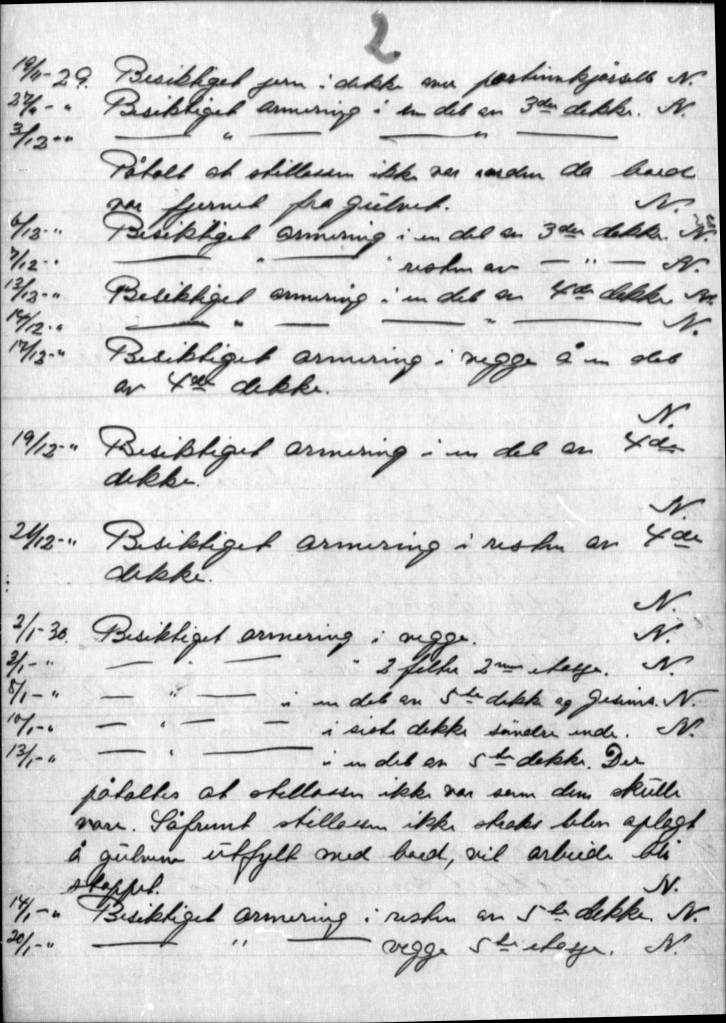 2
19/11-29. Besiktiget jern i dekke over portinnkjørsel N.
27/11-" Besiktiget armering i en del av 3die dekke. N.
3/12-" — " — — " —
Påtalt at stillasen ikke var i orden da bord
var fjernet fra gulvet. N.
6/12-" Besiktiget armering i en del av 3die dekke. N.
7/12-" — " — i resten av — " — N.
13/12-" Besiktiget armering i en del av 4de dekke N.
14/12-" — " — — " — N.
17/12-" Besiktiget armering i vegge å en del
av 4de dekke.
N.
19/12-" Besiktiget armering i en del av 4de
dekke.
N.
21/12-" Besiktiget armering i resten av 4de
dekke.
N.
2/1-30. Besiktiget armering i vegge. N.
3/1-" — " — " 2 felter 2nen etasje. N.
8/1-" — " — i en del av 5te dekke og gesims. N.
10/1-" — " — — i siste dekke søndre ende. N.
13/1-" — " — i en del av 5te dekke. Der
påtaltes at stillasen ikke var som den skulle
være. Såfremt stillasen ikke straks blev oplagt
å gulvene utfylt med bord, vil arbeide bli
stoppet. N.
14/1-" Besiktiget armering i resten av 5te dekke. N.
20/1-" — " — vegge 5te etasje. N.